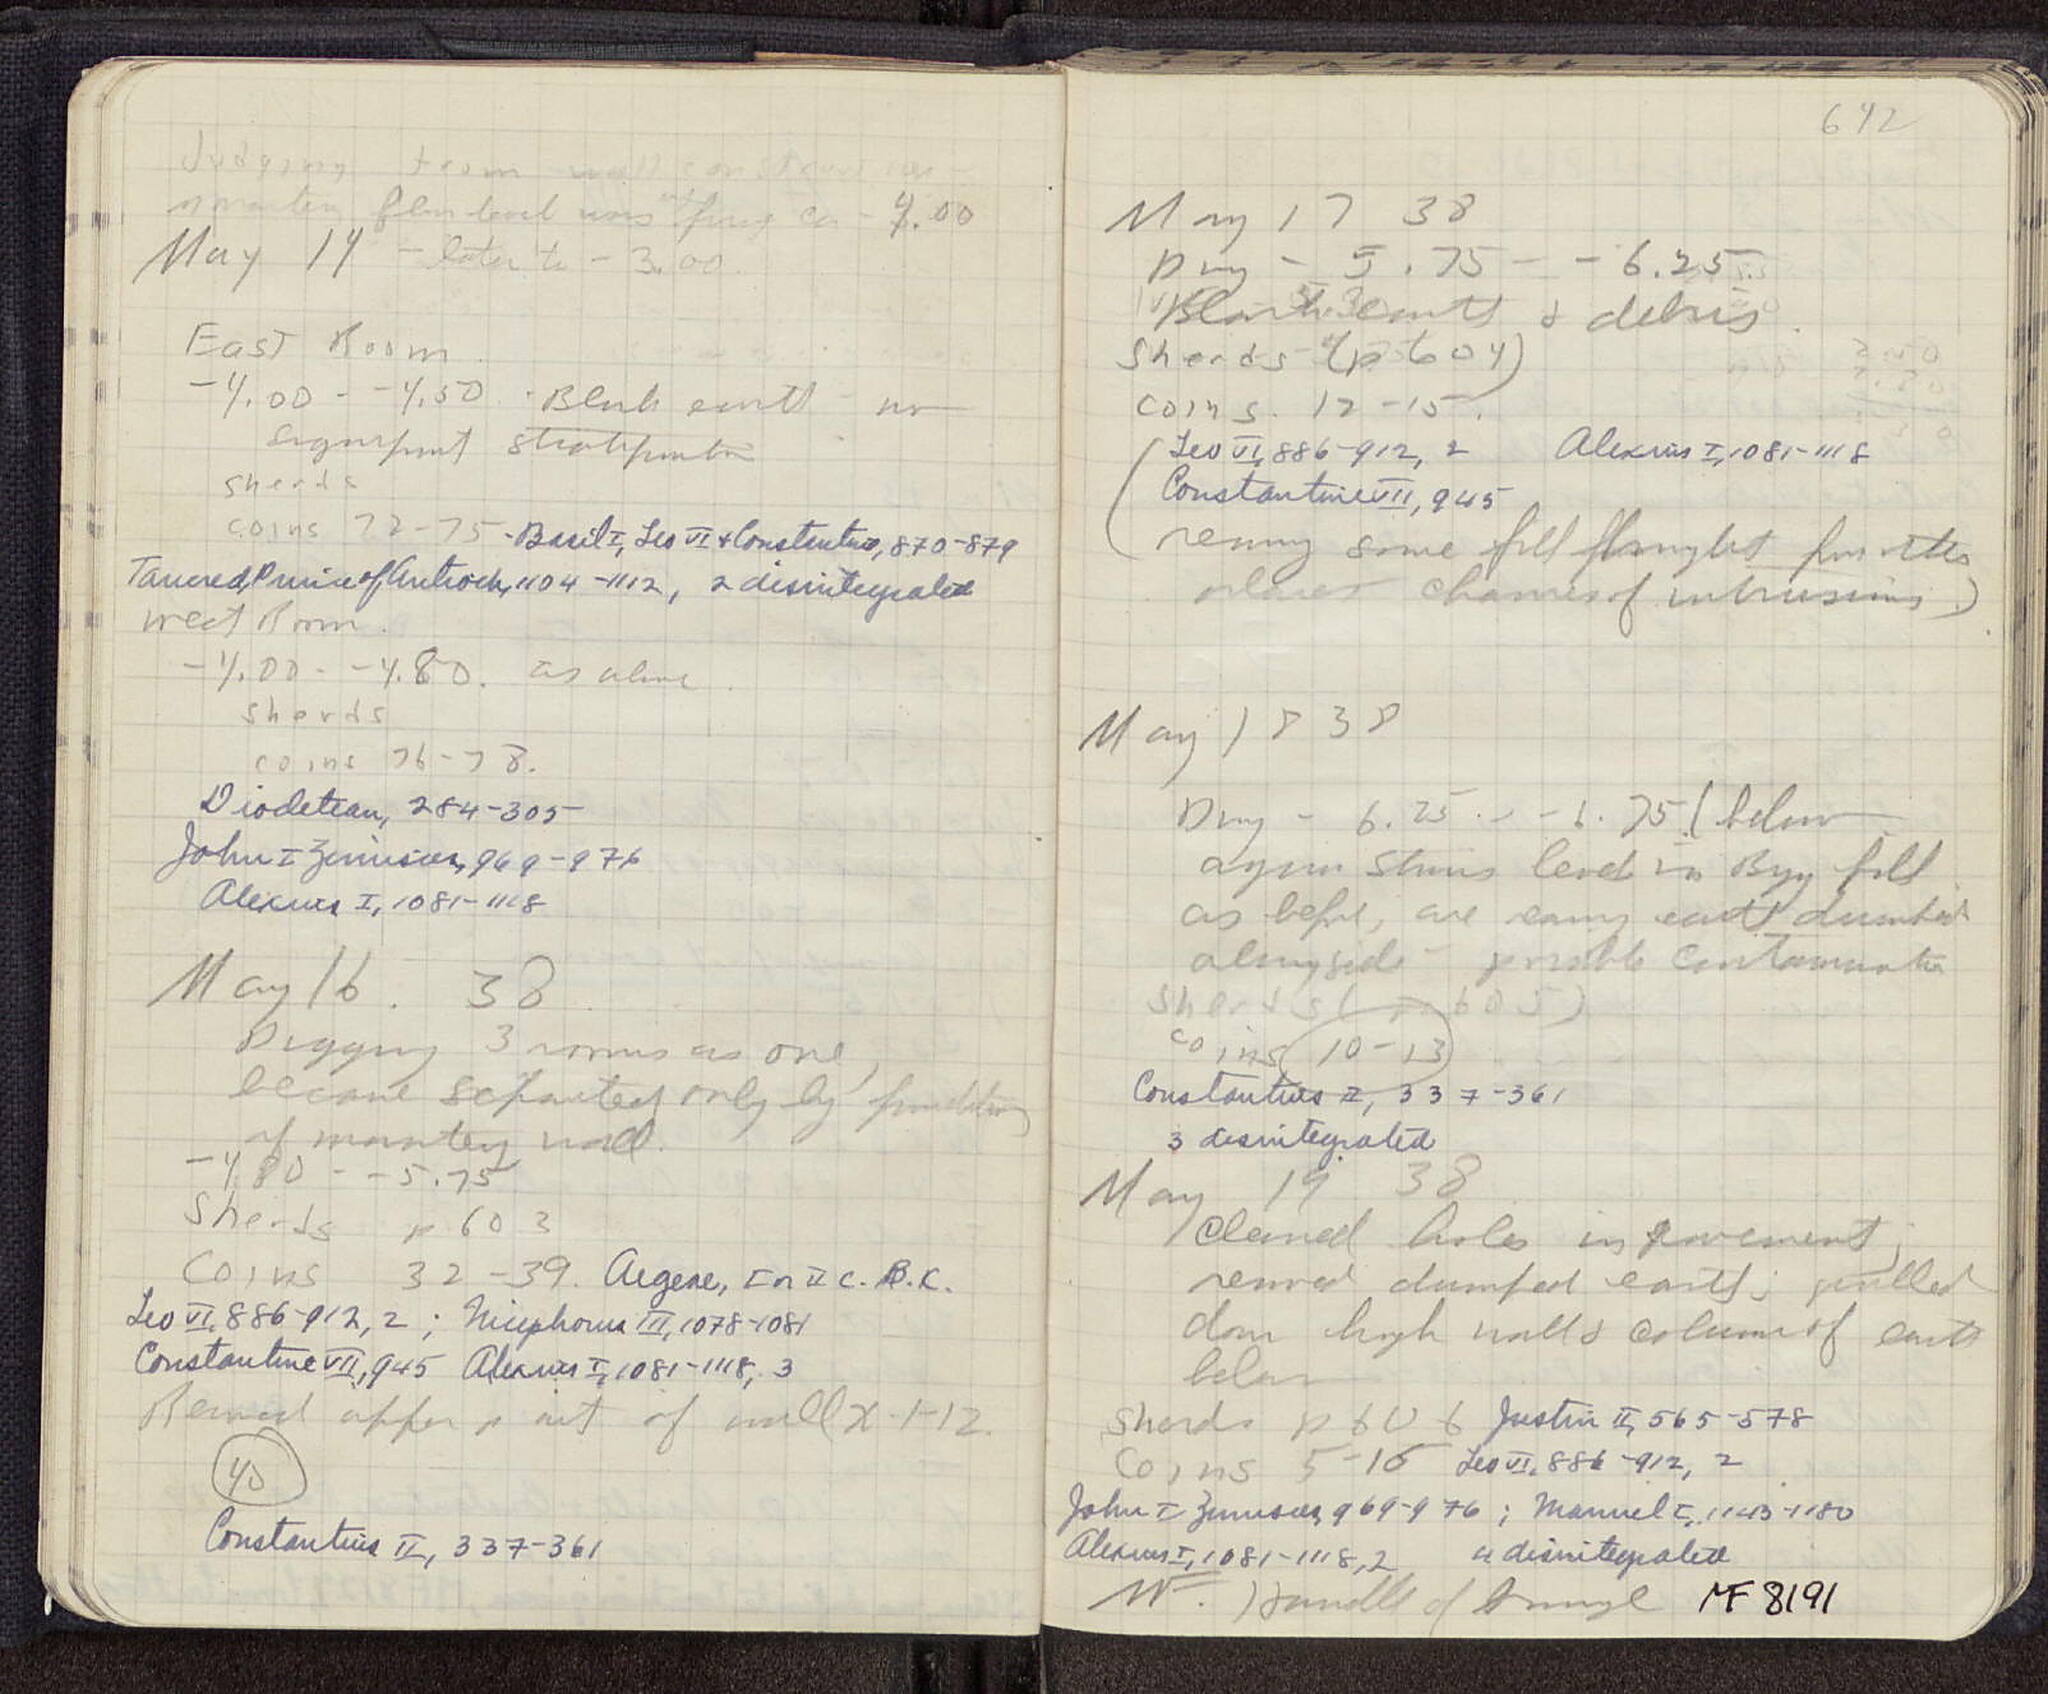 Judging from wall construction
monastery floor level was orig. ca - 4.00
May 14 - later to - 3.00
East Room.
-4.00 - -4.50 - Black earth - no
significant stratification
sherds
coins 72-75 - Basil I, Leo VI + Constantine, 870-879
Tancred, Prince of Antioch, 1104-1112, 2 disintegrated
West Room.
-4.00 - -4.80. as above.
Sherds
coins 76-78.
Diocletian, 284-305
John I Zimisces, 969-976
Alexius I, 1081-1118
May 16. 38.
Digging 3 rooms as one,
because separated only by foundations
of monastery wall.
-4.80 - -5.75
Sherds p 603
Coins 32-39. Aegeae, I or II c. B.C.
Leo VI, 886-912, 2; Nicephorus III, 1078-1081
Constantine VII, 945 Alexius I, 1081-1118, 3
Removed upper part of wall X-1-12.
40
Constantius II, 337-361
642
May 17 38
Dug - 5.75 - - 6.25.
Black earth & debris.
Sherds (p 604)
coins. 12-15.
Leo VI, 886-912, 2 Alexius I, 1081-1118
Constantine VII, 945
(remov some fill from other
places chances of intrusions)
May 18 38
Dug - 6.25 - - 6.75 (below
again level in Byz fill
as before, are earth dumped
alongside - possible contamination
Sherds (p 605)
coins 10-13
Constantius II, 337-361
3 disintegrated
May 19 38
Cleaned holes in pavement;
removed dumped earth; pulled
down high walls & column of earth
below
Sherds p 606 Justin II, 565-578
Coins 5-16 Leo VI, 886-912, 2
John I Zimisces, 969-976; Manuel I, 1143-1180
Alexius I, 1081-1118, 2 4 disintegrated
Handle of MF 8191